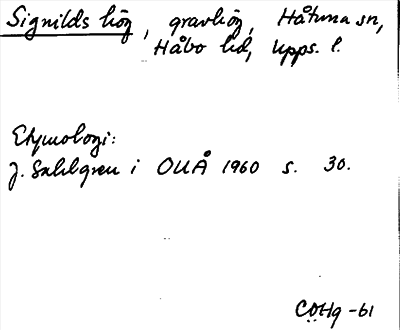 Signilds hög, gravhög, Håtuna sn,
Håbo hd, Upps. l.
Etymologi:
J. Sahlgren i OUÅ 1960 s. 30.
CÖHg -61